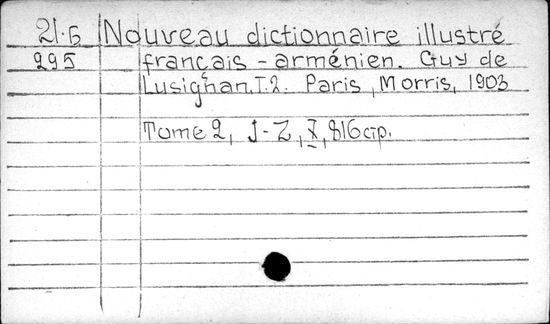 21.Б Nouveau dictionnaire illustré
295 français - arménien. Guy de
Lusignan. T.2. Paris, Morris, 1903
Tome 2, J-Z, X, 816 стр.